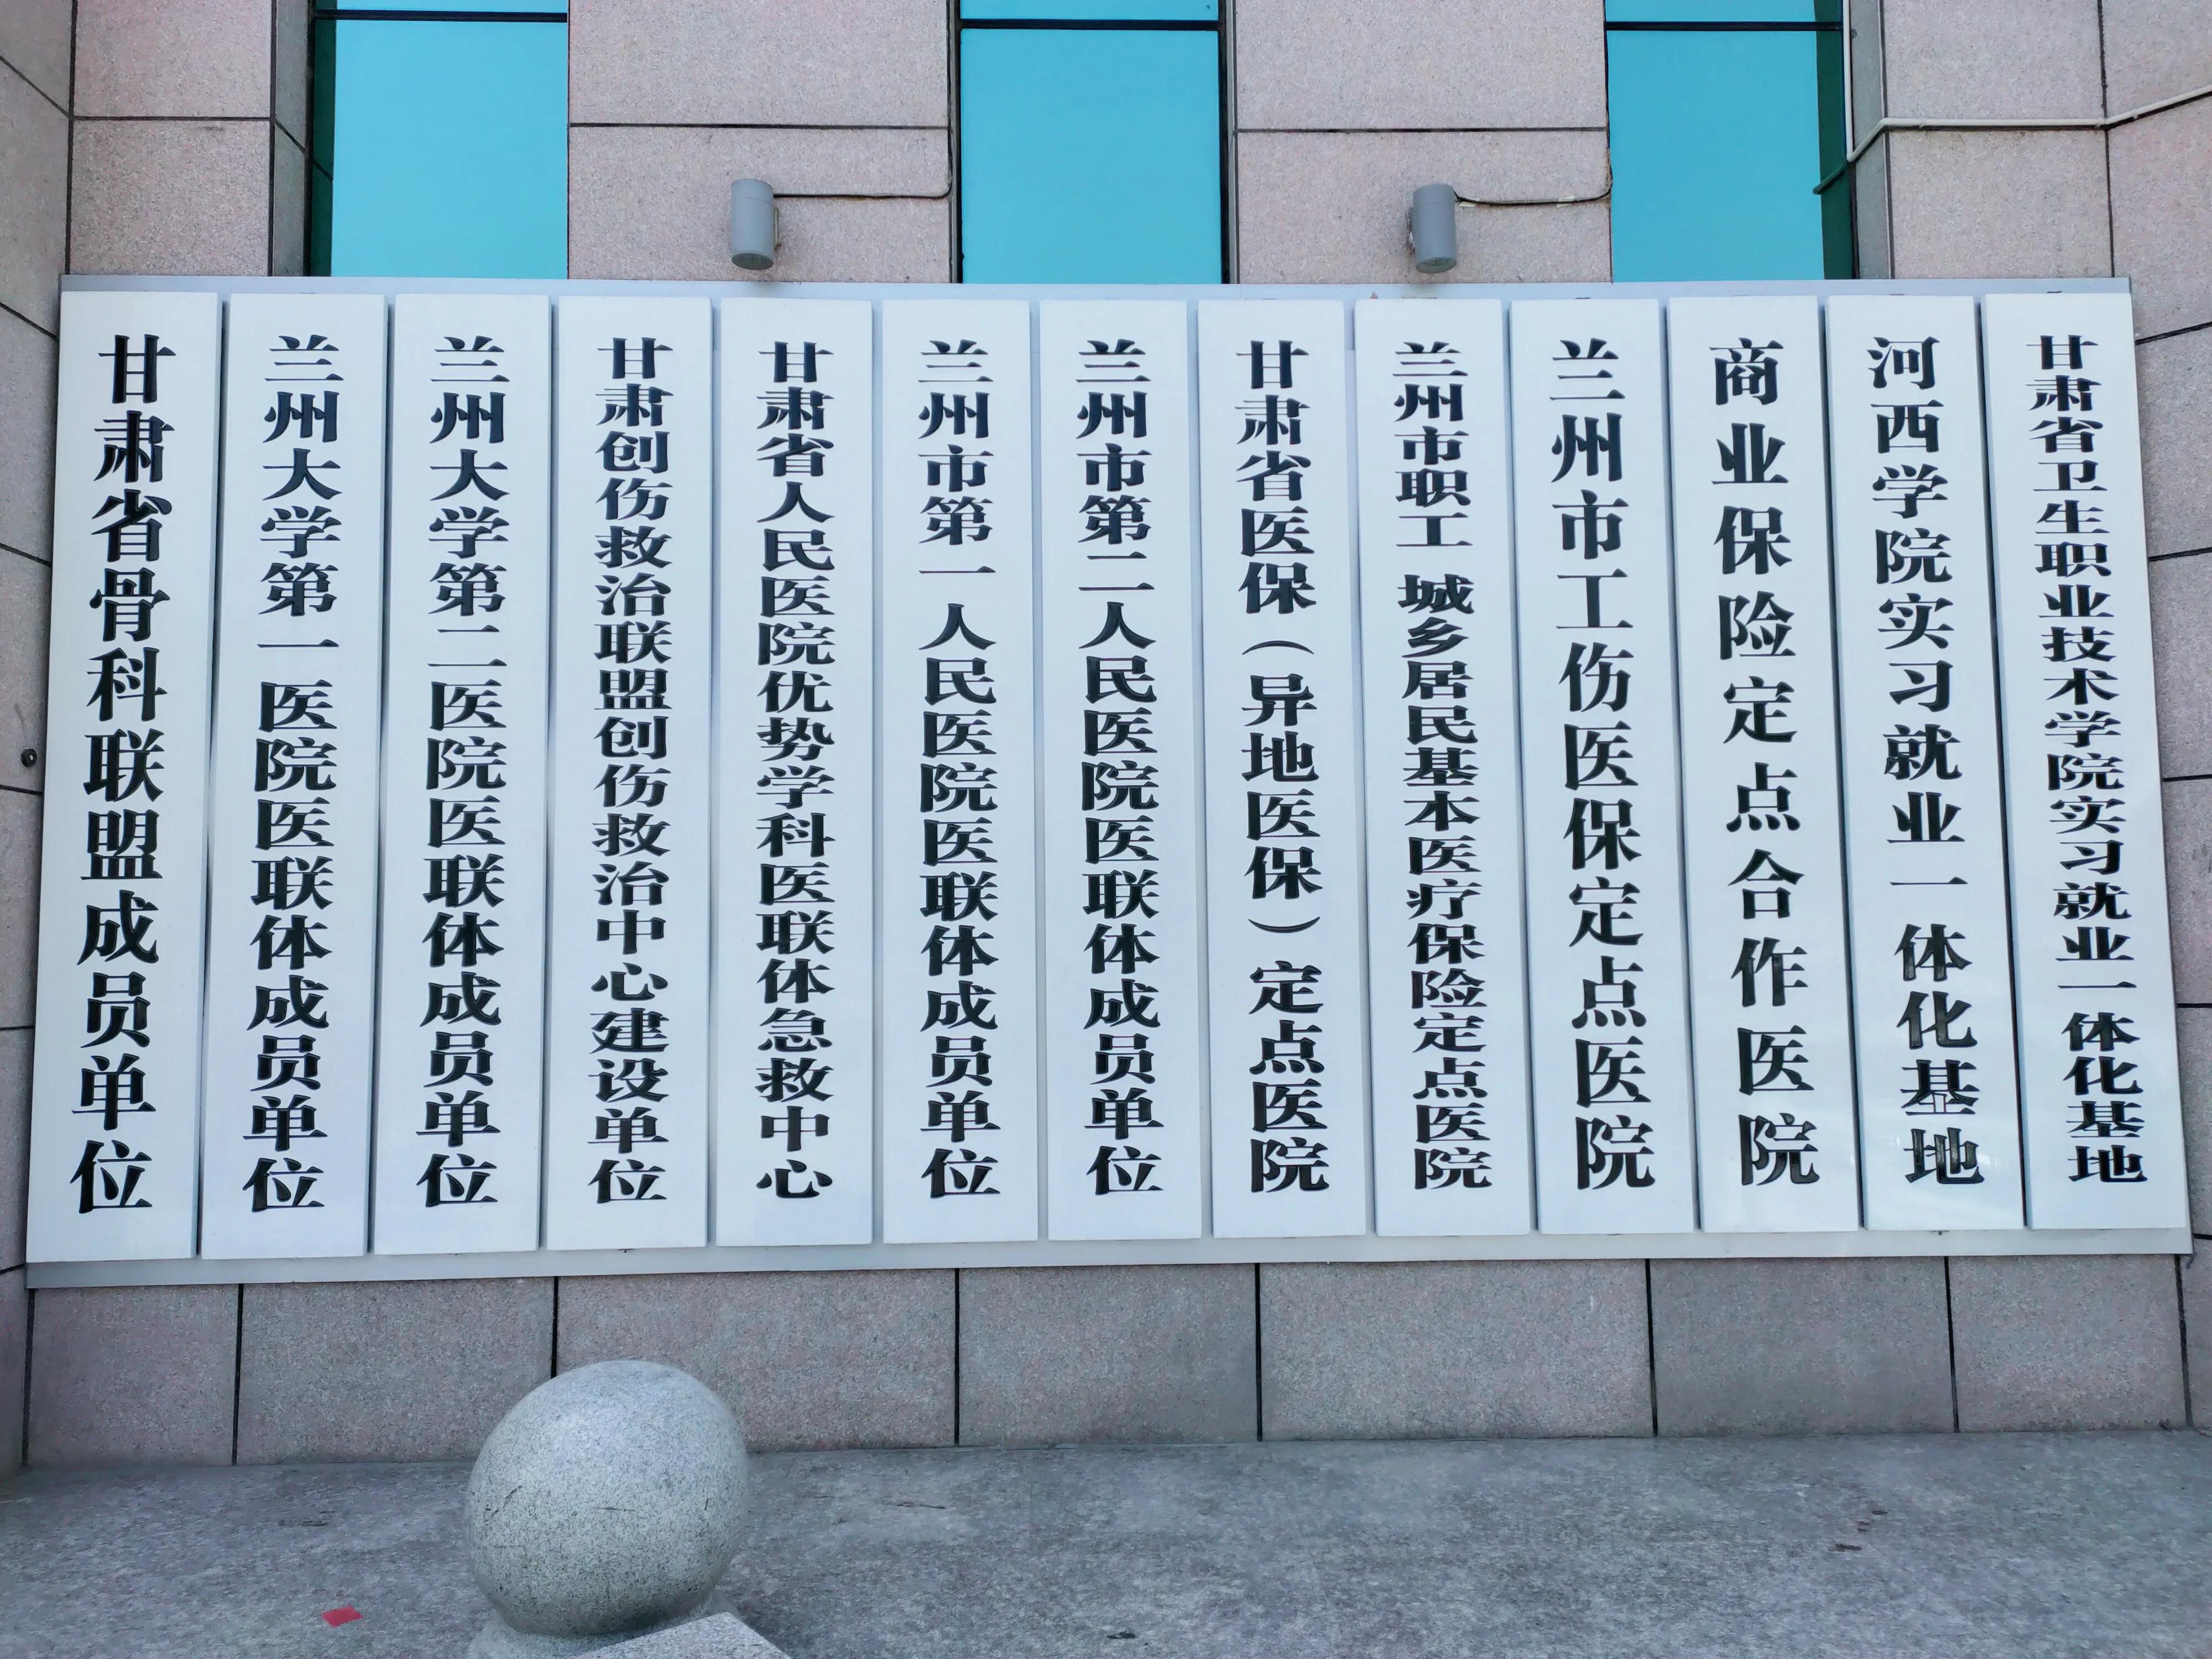 甘肃省骨科联盟成员单位
兰州大学第一医院医联体成员单位
兰州大学第二医院医联体成员单位
甘肃创伤救治联盟创伤救治中心建设单位
甘肃省人民医院优势学科医联体急救中心
兰州市第一人民医院医联体成员单位
兰州市第二人民医院医联体成员单位
甘肃省医保（异地医保）定点医院
兰州市职工 城乡居民基本医疗保险定点医院
兰州市工伤医保定点医院
商业保险定点合作医院
河西学院实习就业一体化基地
甘肃省卫生职业技术学院实习就业一体化基地